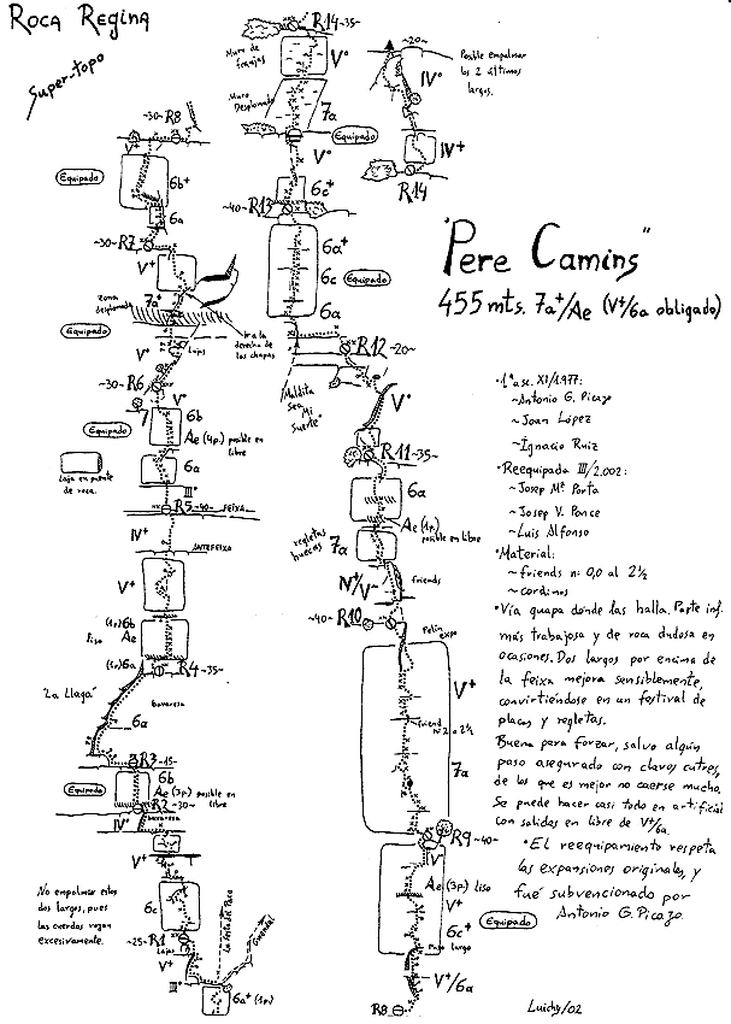 ROCA REGINA
Super-topo
"Pere Camins"
455 mts. 7a+/Ae (V+/6a obligado)
•1ª asc. XI/1977:
~Antonio G. Picazo
~Joan López
~Ignacio Ruiz
•Reequipada III/2.002:
~Josep Mª Porta
~Josep V. Ponce
~Luis Alfonso
•Material:
~friends nº 0,0 al 2½
~cordinos
•Vía guapa donde las halla. Parte inf.
más trabajosa y de roca dudosa en
ocasiones. Dos largos por encima de
la feixa mejora sensiblemente,
convirtiéndose en un festival de
placas y regletas.
Buena para forzar, salvo algún
paso asegurado con clavos cutres,
de los que es mejor no caerse mucho.
Se puede hacer casi todo en artificial
con salidas en libre de V+/6a.
•El reequipamiento respeta
las expansiones originales, y
fué subvencionado por
Antonio G. Picazo.
Luichy/02
~30~ R8
V+
Equipado
6b+
6a
~30~ R7
V+
zona
desplomada
7a+
Ir a la
derecha de
las chapas
Equipado
V°
Lajas
~30~ R6
V°
6b
Equipado
Ae (4p.) posible en
libre
6a
Laja en puente
de roca.
III°
R5 ~40~ FEIXA
IV+
ANTEFEIXA
V+
(1p) 6b
liso Ae
(1p) 6a
R4 ~35~
"La Llaga"
bavaresa
6a
R3 ~15~
6b
Equipado
Ae (3p.) posible en
libre
R2 ~30~
bavaresa
IV°
V+
No empalmar estos
dos largos, pues
las cuerdas rozan
excesivamente.
6c
~25~ R1
Lajas
V+
La Festa del Paca
Gwendal
III°
6a+ (1p.)
R14 ~35~
Muro de
franjas
V°
Muro
Desplomado
7a
Equipado
V°
6c+
~40~ R13
6a+
6c
Equipado
6a
R12 ~20~
"Maldita
sea
Mi
suerte"
V°
R11 ~35~
6a
Ae (1p.)
posible en libre
regletas
huecas
7a
IV+/V-
friends
~40~ R10
Pelín
expo
V+
friend
nº 2 o 2½
7a
R9 ~40~
V
Ae (3p.) liso
V+
6c+
Equipado
Paso largo
V+/6a
R8
~20~
Posible empalmar
los 2 últimos
largos.
IV°
IV+
R14